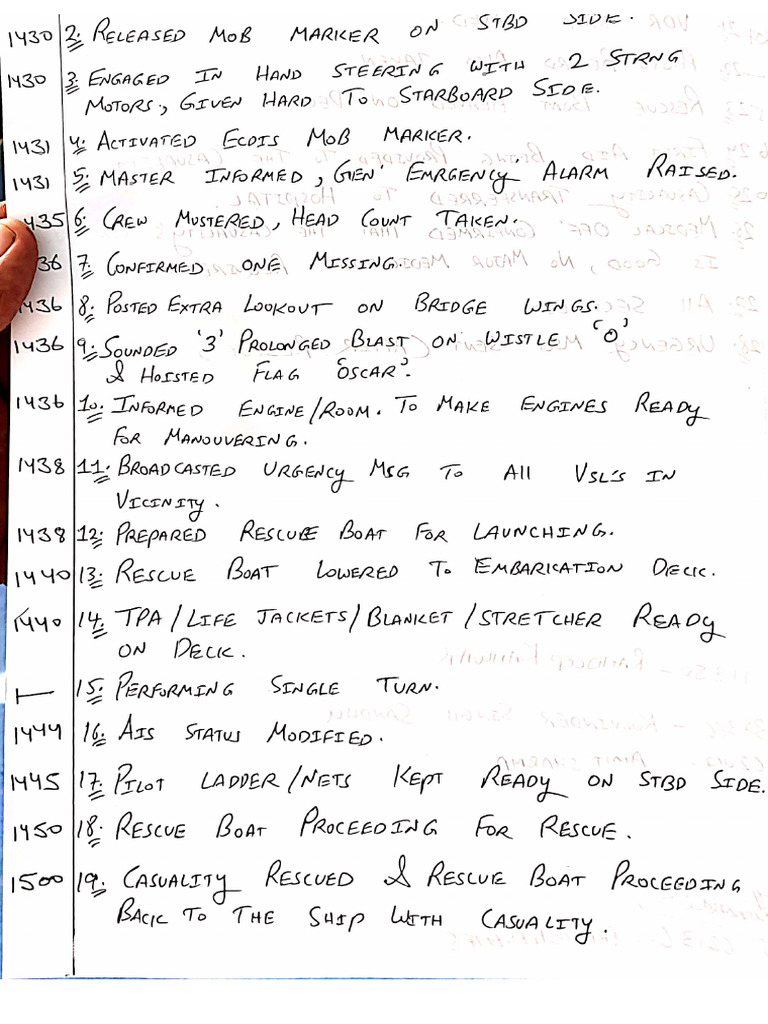 1430 2. RELEASED MOB MARKER ON STBD SIDE.
1430 3. ENGAGED IN HAND STEERING WITH 2 STRNG
MOTORS, GIVEN HARD TO STARBOARD SIDE.
1431 4. ACTIVATED ECDIS MOB MARKER.
1431 5. MASTER INFORMED, GEN' EMRGENCY ALARM RAISED.
1435 6. CREW MUSTERED, HEAD COUNT TAKEN.
36 7. CONFIRMED ONE MISSING.
1436 8. POSTED EXTRA LOOKOUT ON BRIDGE WINGS.
1436 9. SOUNDED '3' PROLONGED BLAST ON WISTLE 'O'
& HOISTED FLAG 'OSCAR'.
1436 10. INFORMED ENGINE/ROOM. TO MAKE ENGINES READY
FOR MANOUVERING.
1438 11. BROADCASTED URGENCY MSG TO All VSL'S IN
VICINITY.
1438 12. PREPARED RESCUE BOAT FOR LAUNCHING.
1440 13. RESCUE BOAT LOWERED TO EMBARICATION DECK.
1440 14. TPA/LIFE JACKETS/BLANKET/STRETCHER READY
ON DECK.
15. PERFORMING SINGLE TURN.
1444 16. AIS STATUS MODIFIED.
1445 17. PILOT LADDER/NETS KEPT READY ON STBD SIDE.
1450 18. RESCUE BOAT PROCEEDING FOR RESCUE.
1500 19. CASUALITY RESCUED & RESCUE BOAT PROCEEDING
BACK TO THE SHIP WITH CASUALITY.